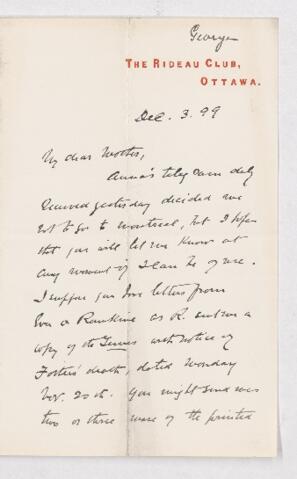 George
THE RIDEAU CLUB,
OTTAWA.
Dec. 3. 99
My dear Mother,
Anna's telegram duly
received yesterday decided me
not to go to Montreal, but I hope
that you will let me know at
any moment if I can be of use.
I suppose you have letters from
Eva or Rankine as R. sent me a
copy of the Times with notice of
Foster's death, dated Monday
Nov. 20th. You might send me
two or three more of the printed